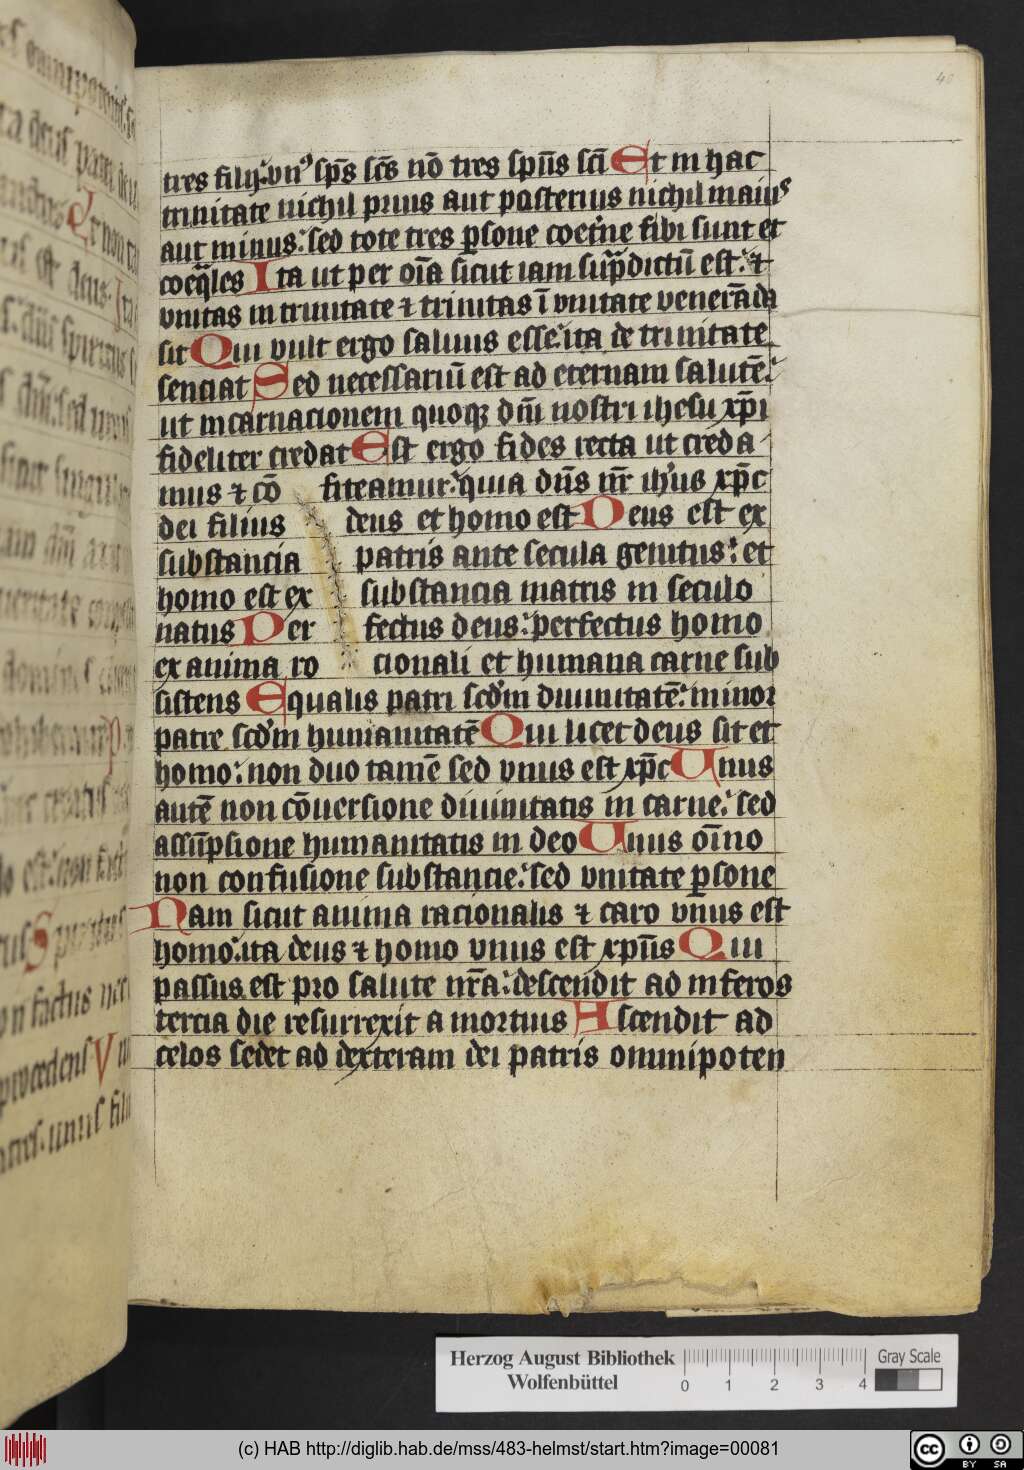 40
tres filij: vn⁹ sp̄s sc̄s nō tres spūs scī Et in hac
trinitate nichil prius aut posterius nichil maius
aut minus: sed tote tres ꝑsone coet̄ne sibi sunt et
coeq̄les Ita ut per oīa sicut iam sup̄dictū est: ⁊
vnitas in trinitate ⁊ trinitas ī vnitate venerāda
sit Qui vult ergo saluus esse: ita de trinitate
senciat Sed necessariū est ad eternam salutē:
ut incarnacionem quoqꝫ dn̄i nostri ihesu xp̄i
fideliter credat Est ergo fides recta ut creda
mus ⁊ cō fiteamur: quia dn̄s nr̄ ih'us xp̄c
dei filius deus et homo est Deus est ex
substancia patris ante secula genitus: et
homo est ex substancia matris in seculo
natus Per fectus deus: perfectus homo
ex anima ro cionali et humana carne sub
sistens Equalis patri scd'm diuinitatē: minor
patre scd'm humanitatē Qui licet deus sit et
homo: non duo tamē sed vnus est xp̄c Unus
autē non cōuersione diuinitatis in carne: sed
assūpsione humanitatis in deo Unus oīno
non confusione substancie: sed vnitate ꝑsone
Nam sicut anima racionalis ⁊ caro vnus est
homo: ita deus ⁊ homo vnus est xpūs Qui
passus est pro salute nr̄a: descendit ad inferos
tercia die resurrexit a mortuis Ascendit ad
celos sedet ad dexteram dei patris omnipoten
Herzog August Bibliothek
Wolfenbüttel
0 1 2 3 4
Gray Scale
(c) HAB http://diglib.hab.de/mss/483-helmst/start.htm?image=00081
cc BY SA